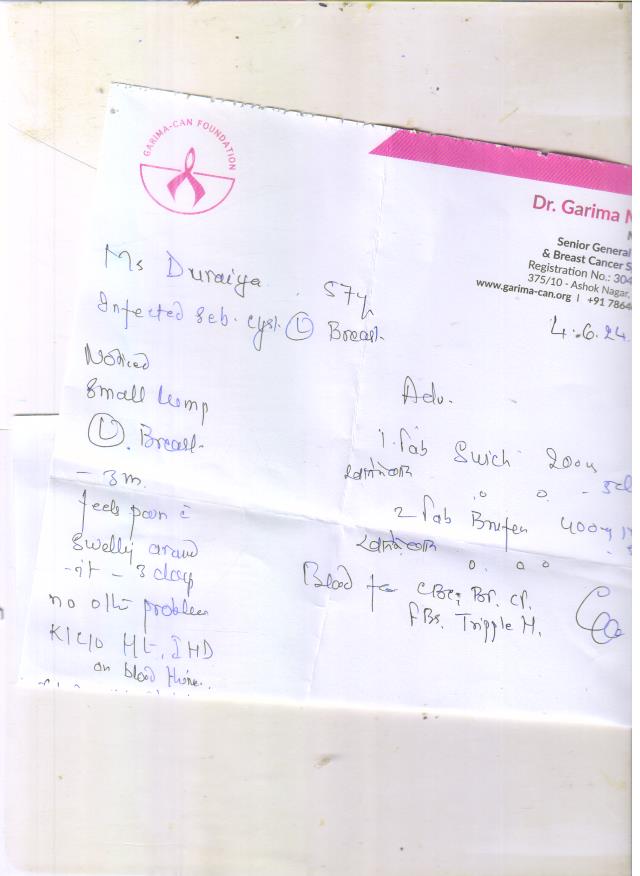 GARIMA-CAN FOUNDATION
Dr. Garima M
Senior General
& Breast Cancer S
Registration No.: 304
375/10 - Ashok Nagar,
www.garima-can.org | +91 7864
4.6.24
Ms Duraiya 57y
Infected Seb. cyst. (L) Breast.
Noticed
Small lump
(L). Breast.
- 3 m.
feels pain c̄
Swelling around
it - 3 day
no oth problem
K/C/O Ht, IHD
on blood thine.
Adv.
1. Tab Swich 200
2 Tab Brufen 400
Blood for CBC, BT. CT.
FBS. Tripple H.